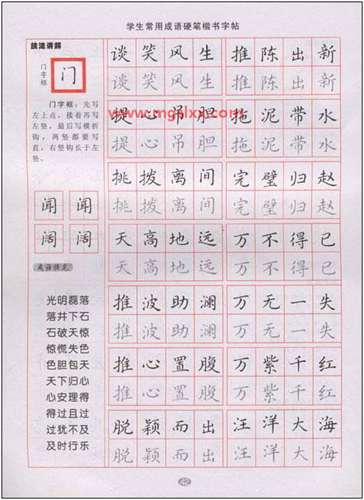 学生常用成语硬笔楷书字帖
技法讲解
门字框
门
门字框：先写
左上点，接着再写
左竖，最后写横折
钩，两竖都要写
直，右竖钩长于左
竖。
闻 闻
阔 阔
光明磊落
落井下石
石破天惊
惊慌失色
色胆包天
天下归心
心安理得
得过且过
过犹不及
及时行乐
谈笑风生 推陈出新
谈笑风生 推陈出新
提心吊胆 拖泥带水
提心吊胆 拖泥带水
挑拨离间 完璧归赵
挑拨离间 完璧归赵
天高地远 万不得已
天高地远 万不得已
推波助澜 万无一失
推波助澜 万无一失
推心置腹 万紫千红
推心置腹 万紫千红
脱颖而出 汪洋大海
脱颖而出 汪洋大海